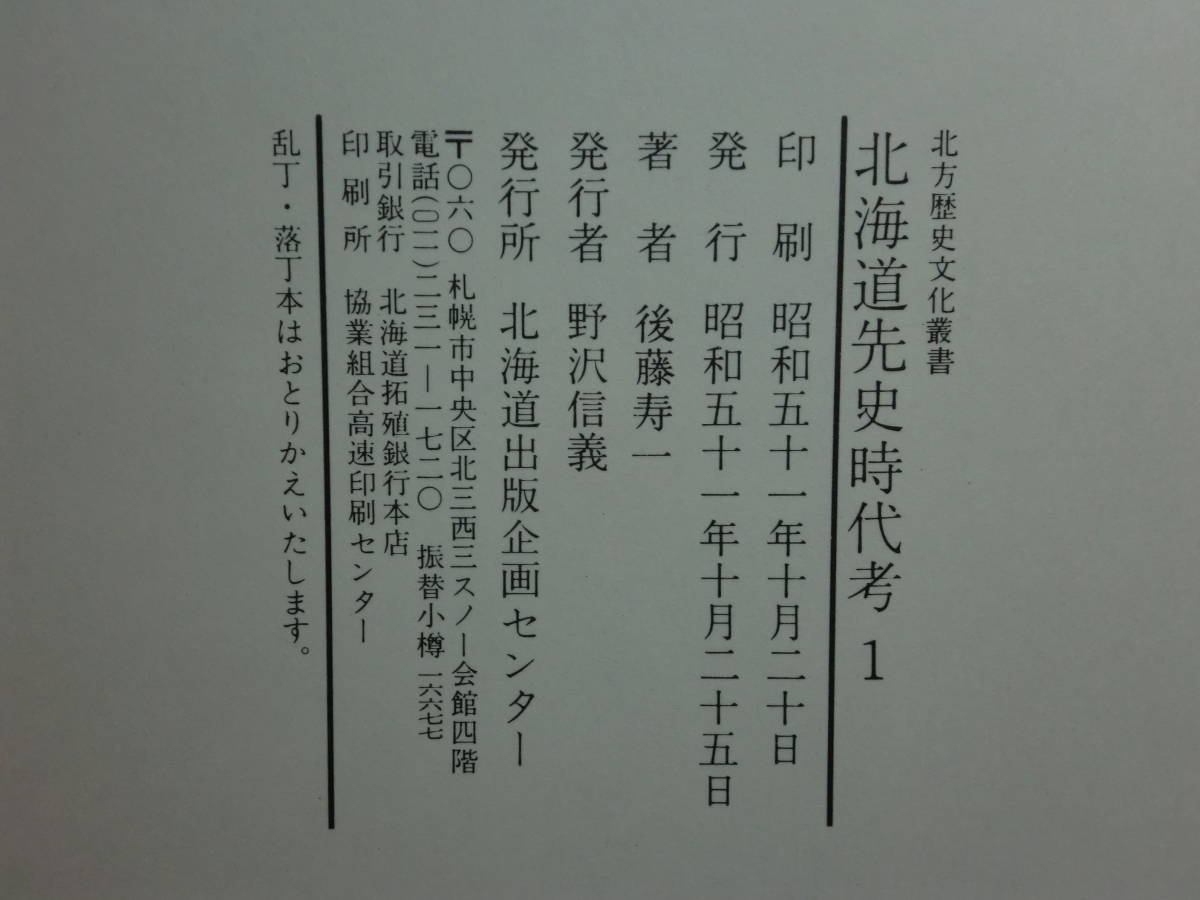 北方歴史文化叢書
北海道先史時代考 1
印刷 昭和五十一年十月二十日
発行 昭和五十一年十月二十五日
著者 後藤寿一
発行者 野沢信義
発行所 北海道出版企画センター
〒〇六〇 札幌市中央区北三西三スノー会館四階
電話(〇一一)二三一―一七二〇 振替小樽一六六七七
取引銀行 北海道拓殖銀行本店
印刷所 協業組合高速印刷センター
乱丁・落丁本はおとりかえいたします。